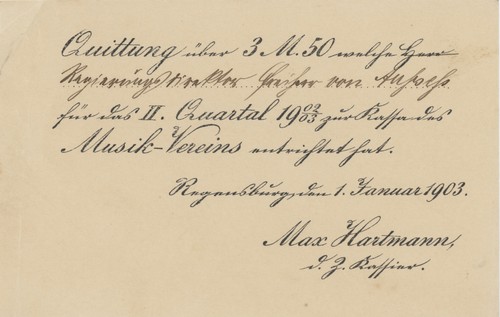 Quittung über 3 M. 50 welche Herr
Regierungsdirektor Freiherr von Aufseß
für das II. Quartal 19 02/03 zur Kassa des
Musik-Vereins entrichtet hat.
Regensburg, den 1. Januar 1903.
Max Hartmann,
d. Z. Kassier.